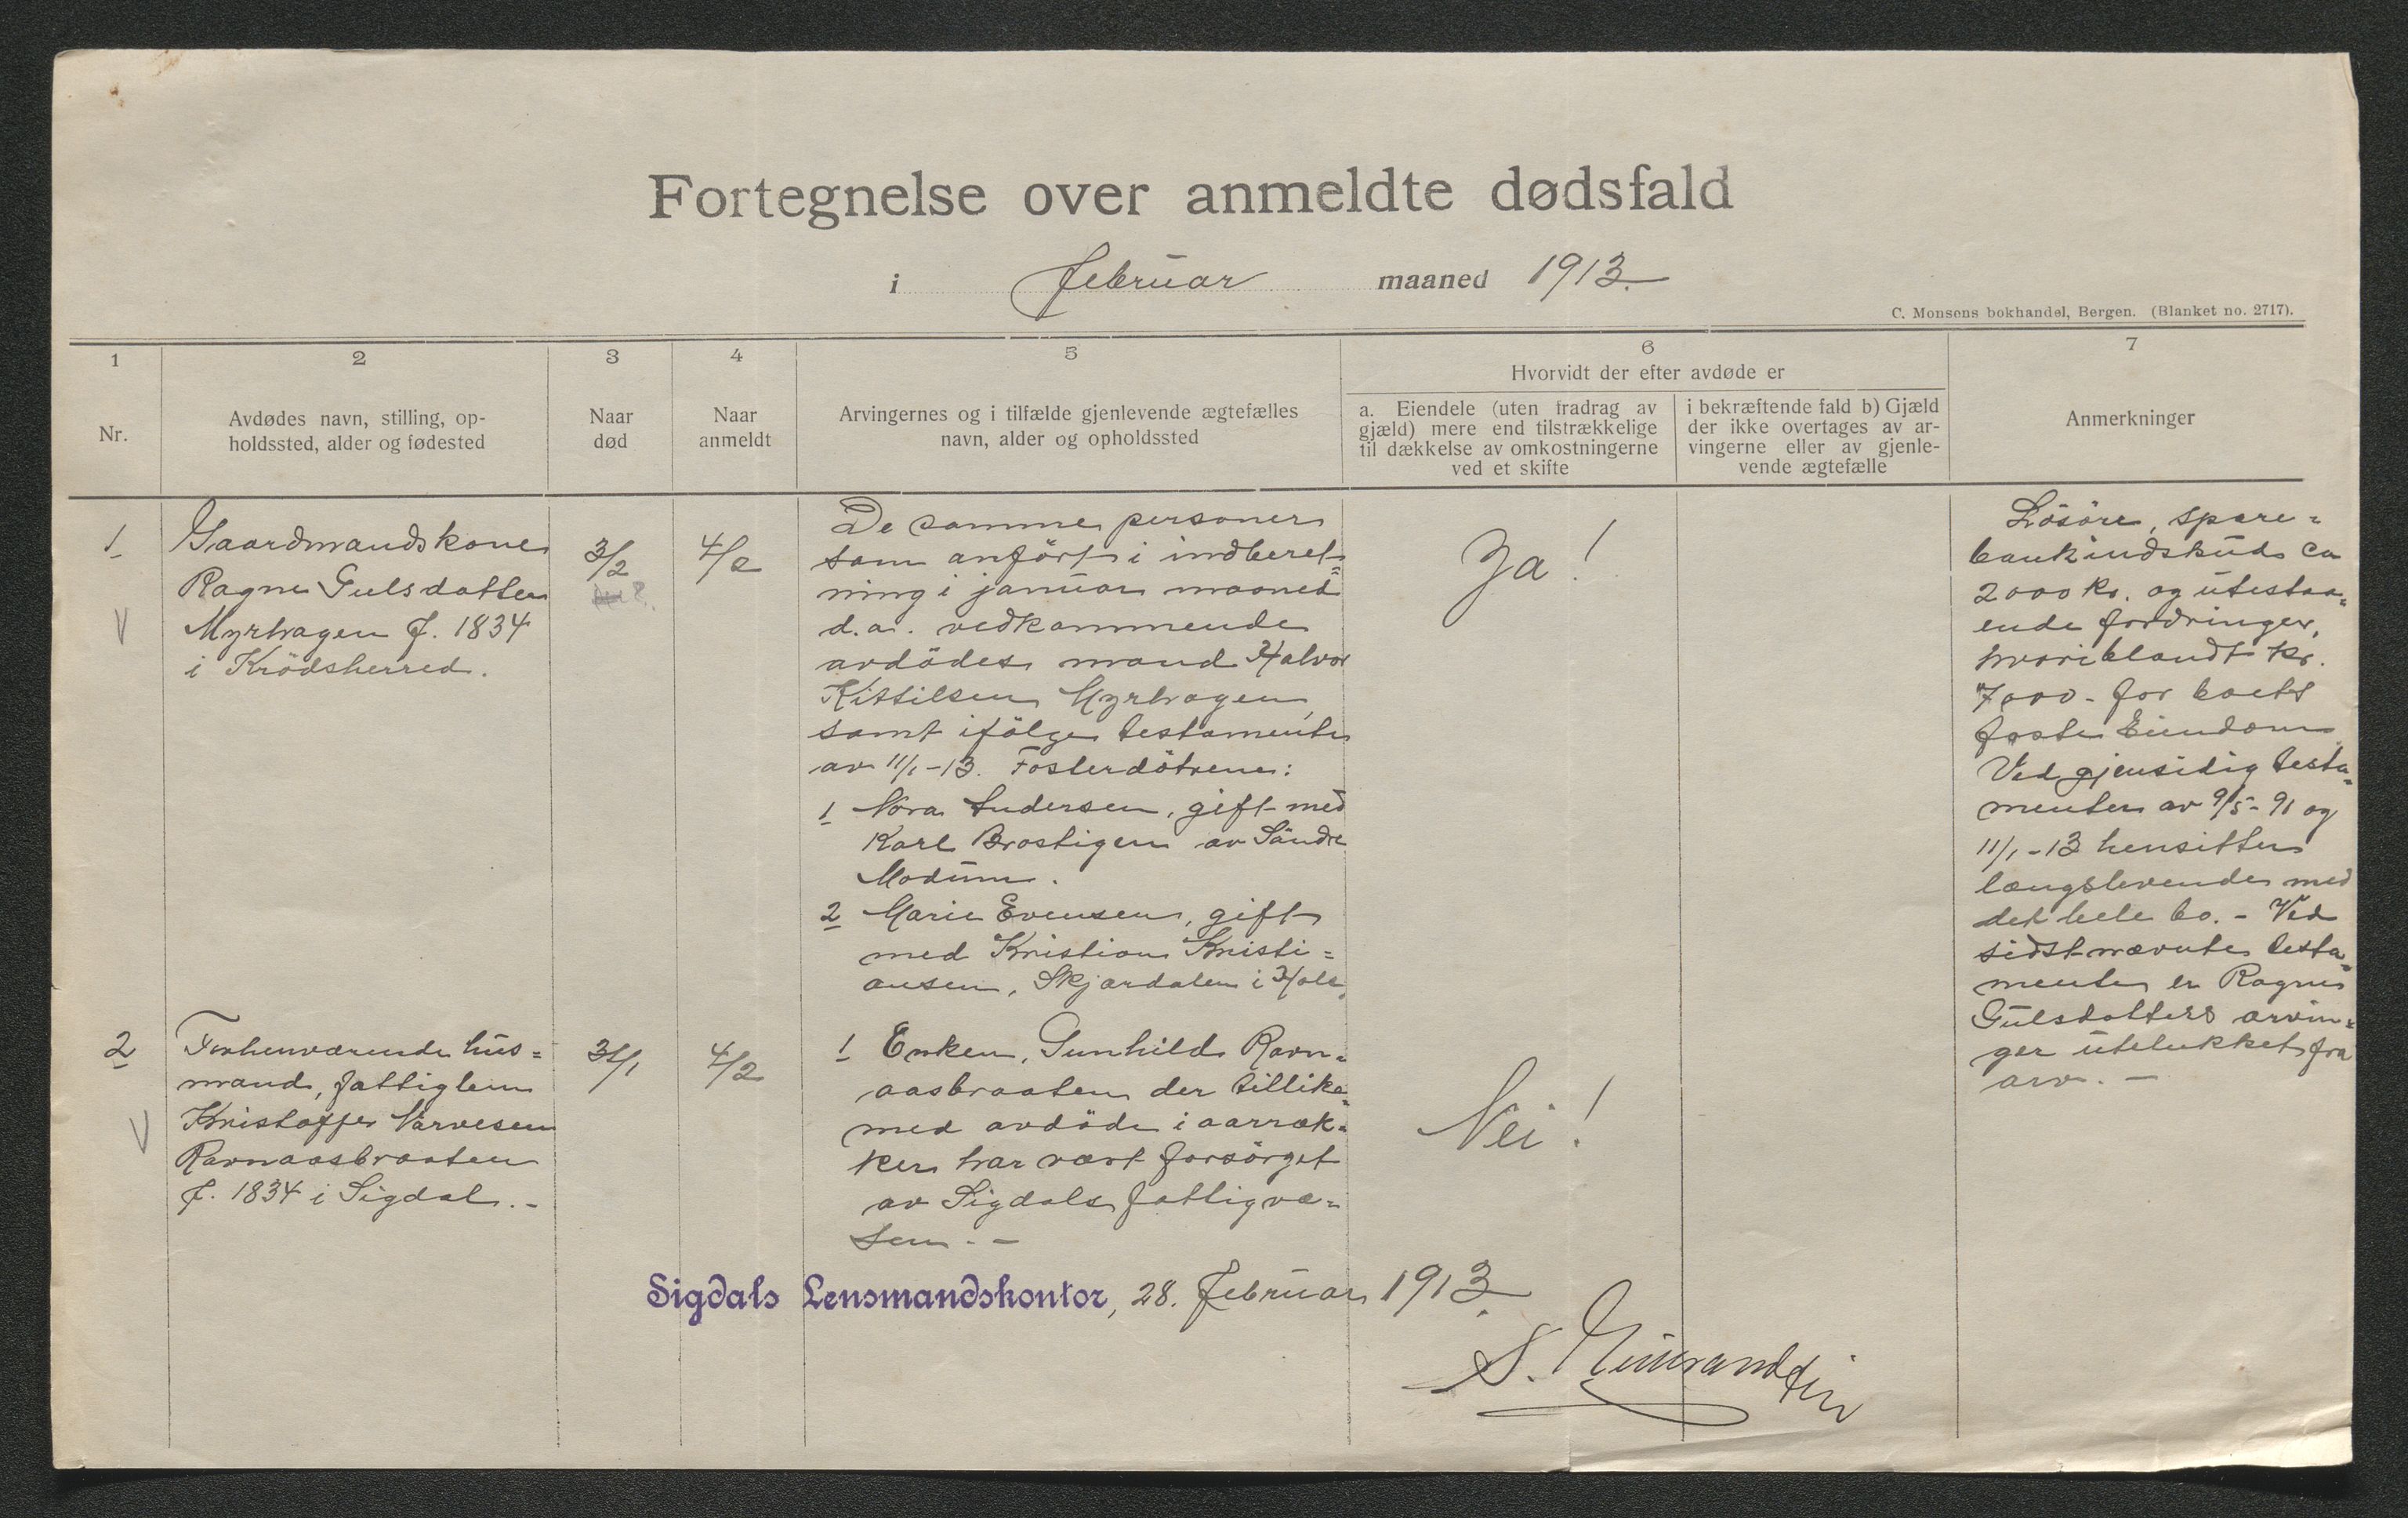 Fortegnelse over anmeldte dødsfald
i Februar maaned 1913.
C. Monsens bokhandel, Bergen. (Blanket no. 2717).
1
2
3
4
5
6
7
Nr.
Avdødes navn, stilling, op-
holdssted, alder og fødested
Naar
død
Naar
anmeldt
Arvingernes og i tilfælde gjenlevende ægtefælles
navn, alder og opholdssted
Hvorvidt der efter avdøde er
a. Eiendele (uten fradrag av
gjæld) mere end tilstrækkelige
til dækkelse av omkostningerne
ved et skifte
i bekræftende fald b) Gjæld
der ikke overtages av ar-
vingerne eller av gjenle-
vende ægtefælle
Anmerkninger
1
Gaardmandskone
Ragne Gulsdatter
Myrhagen f. 1834
i Krödsherred.
3/2
4/2
De samme personer
som anfört i indberet=
ning i januar maaned
d.a. vedkommende
avdödes mand Halvor
Kittilsen Myrhagen,
samt ifölge testamente
av 11/1-13. Fosterdötrene:
1 Nora Andersen, gift med
Karl Brostigen av Söndre
Modum.
2 Marie Evensen, gift
med Kristian Kristi=
ansen, Skjardalen i Hole,
Ja!
Lösöre, spare=
bankindskud ca
2000 kr. og utestaa=
ende fordringer,
hvoriblandt kr.
7000- for boets
faste Eiendom
Ved gjensidig testa=
menter av 9/5-91 og
11/1-13 hensitter
længslevende med
det hele bo. - Ved
sidstnævnte testa=
mente er Ragne
Gulsdatters arvin=
ger utelukket fra
arv. -
2
Forhenværende hus=
mand, fattiglem
Kristoffer Narvesen
Ravnaasbraaten
f. 1834 i Sigdal. -
31/1
4/2
1 Enken, Gunhild Ravn=
aasbraaten der tillike=
med avdöde i aarræk=
ker har vært forsörget
av Sigdals fattigvæ=
sen. -
Nei!
Sigdals Lensmandskontor, 28. Februar 1913.